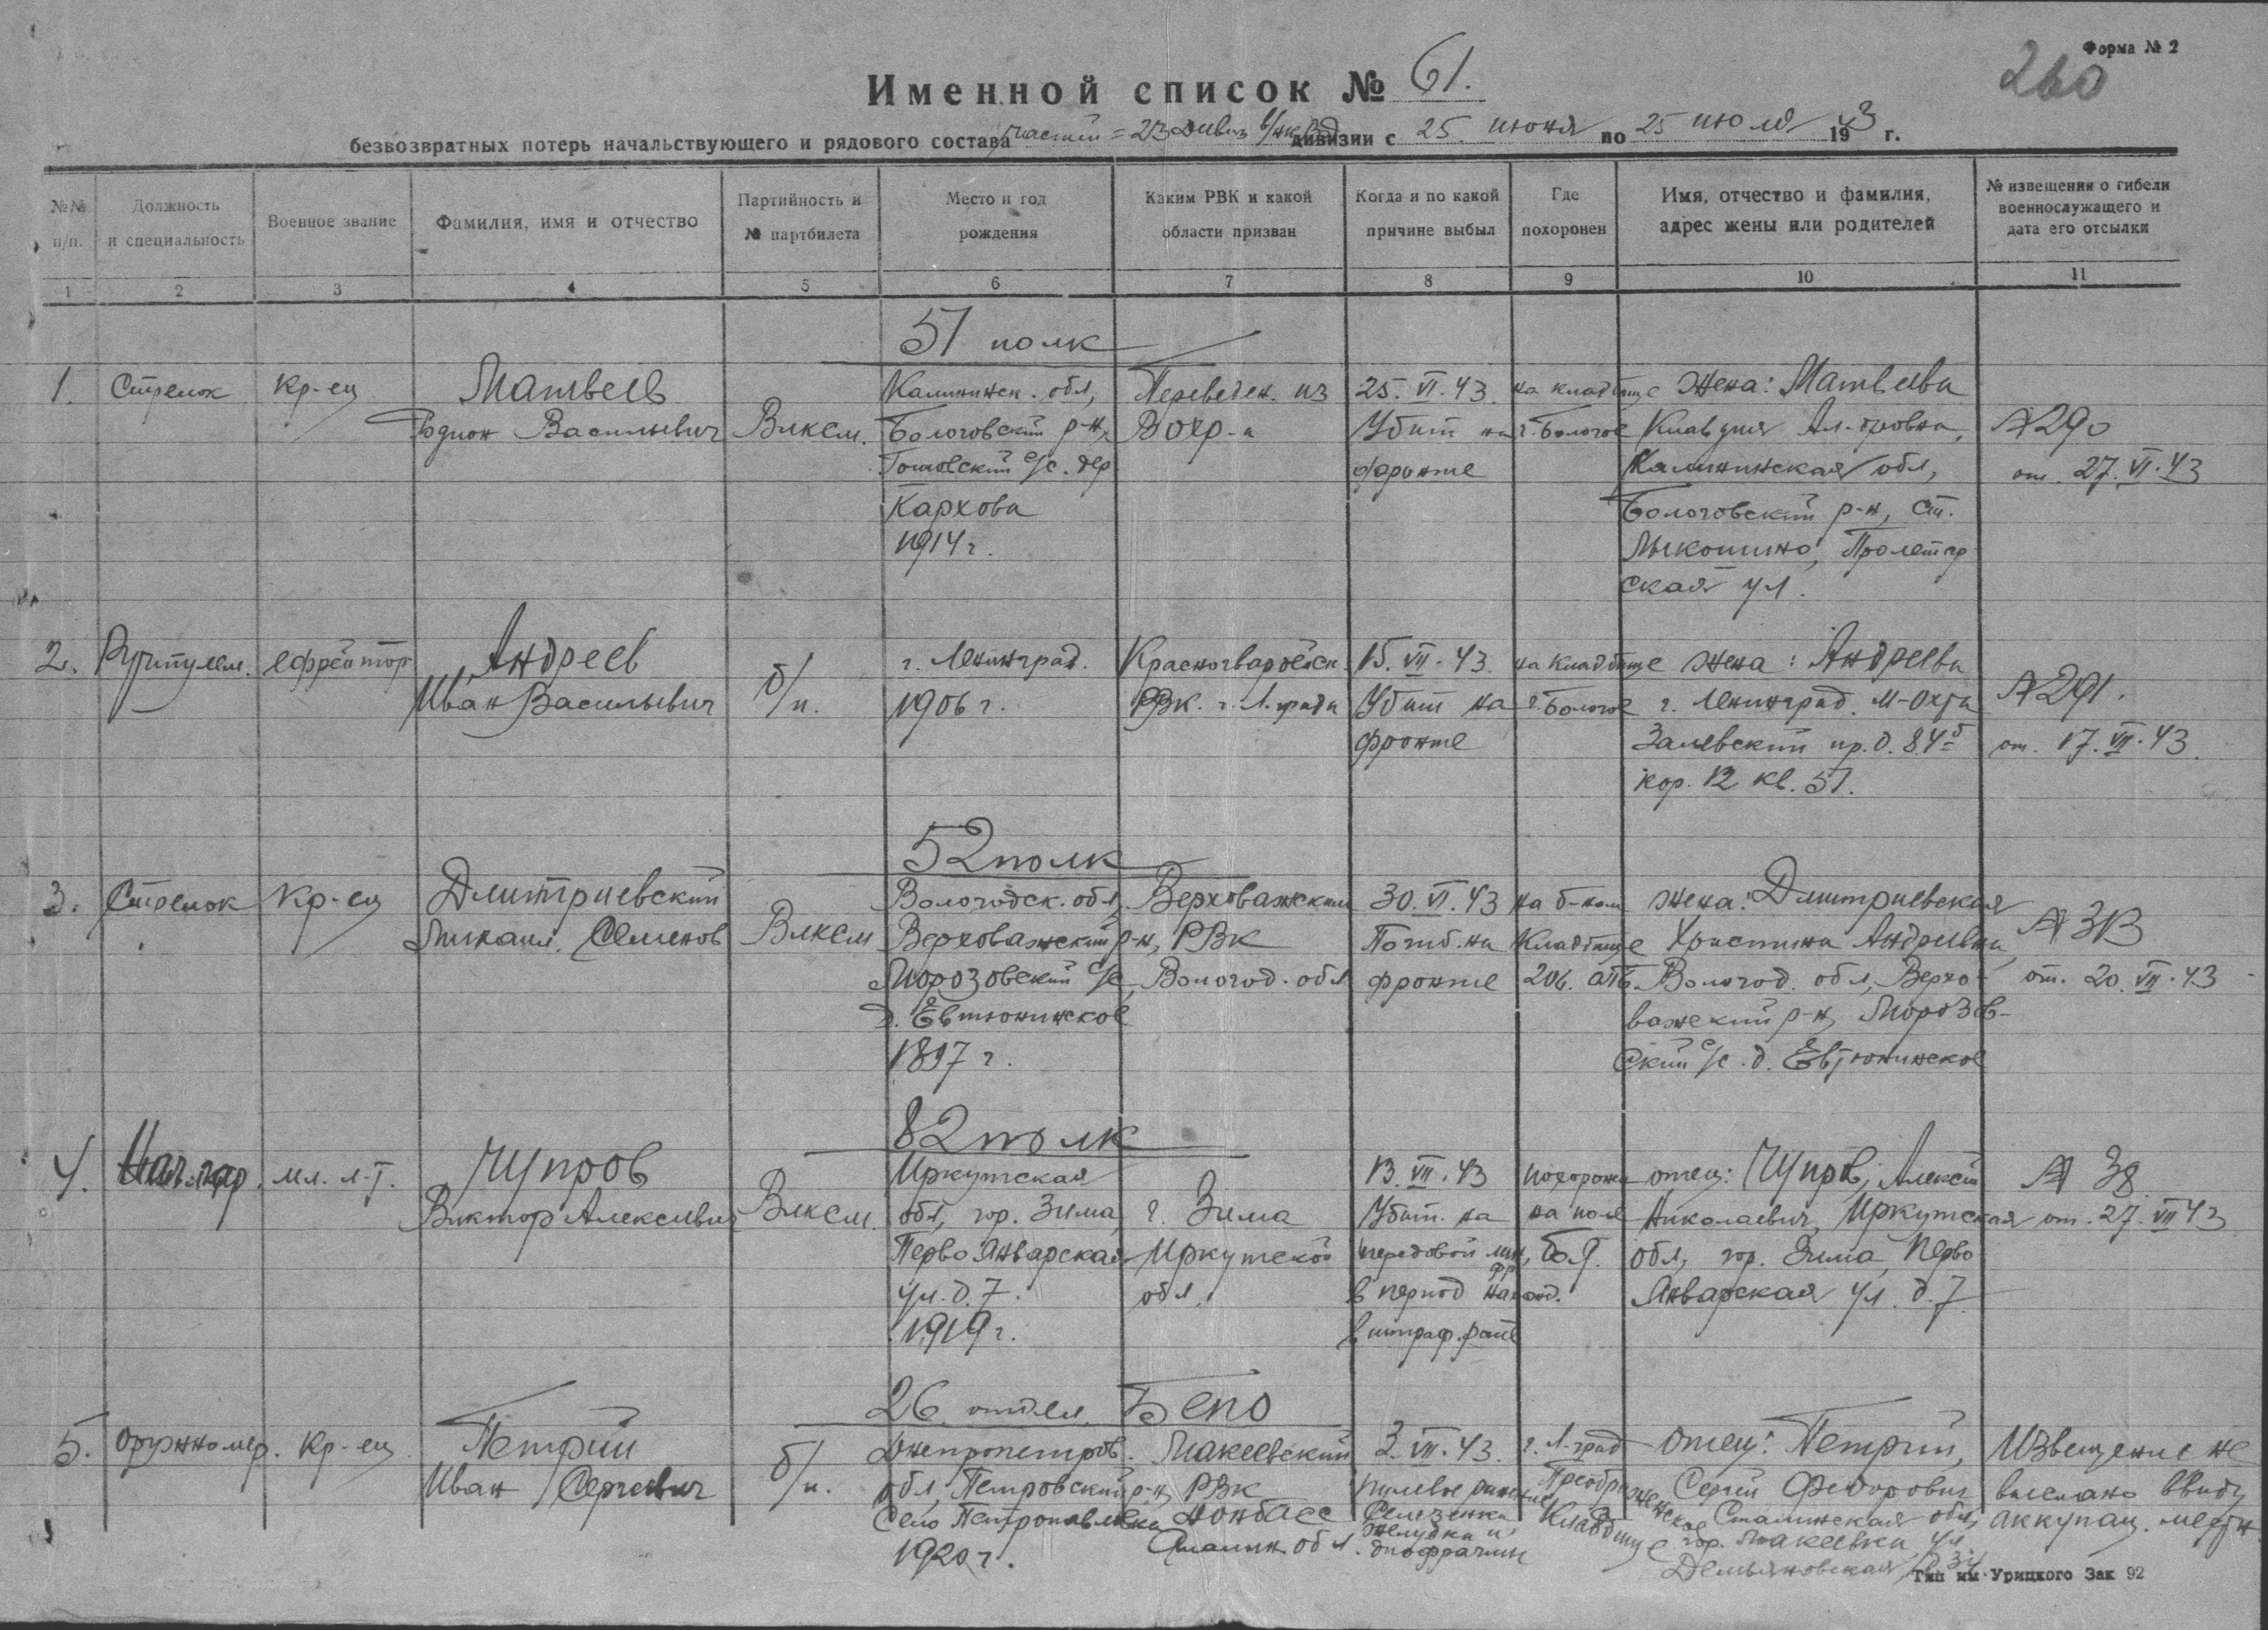 Форма № 2
260
Именной список № 61.
безвозвратных потерь начальствующего и рядового состава частей 23 дивиз в/нквд дивизии с 25 июня по 25 июля 1943 г.
№№ п/п.
Должность и специальность
Военное звание
Фамилия, имя и отчество
Партийность и № партбилета
Место и год рождения
Каким РВК и какой области призван
Когда и по какой причине выбыл
Где похоронен
Имя, отчество и фамилия, адрес жены или родителей
№ извещения о гибели военнослужащего и дата его отсылки
1 2 3 4 5 6 7 8 9 10 11
51 полк
1. Стрелок Кр-ец Матвеев Калининск. обл, Переведен. из 25.VI.43. на кладбище жена: Матвеева
Родион Васильевич Влксм. Бологовский р-н, Вохр-а Убит на г. Бологое Клавдия Ал-дровна, №290
с/с. дер фронте Калининская обл, от. 27.VI.43
Кархова Бологовский р-н, ст.
1914 г. Лыкошино, Пролетар
ская ул.
2. ефрейтор Андреев г. Ленинград. Красногвардейск. 15.VII.43. на кладбище жена: Андреева
Иван Васильевич б/п. 1906 г. РВК. г. Л.града Убит на г. Бологое г. Ленинград. М-Охта №291.
фронте Заневский пр. д. 84б от. 17.VII.43.
кор. 12 кв. 51.
52 полк
3. Стрелок Кр-ец Дмитриевский Вологодск. обл, Верховажским 30.VI.43 на б-ном жена: Дмитриевская
Михаил Семенов Влксм Верховажский р-н, РВК Погиб. на Кладбище Христина Андреевна,
Морозовский с/с, Вологод. обл фронте 206. Вологод. обл, Верхо- от. 20.VII.43
д. Евтюнинское важский р-н, Морозов-
1897 г. ский с/с. д. Евтюнинское
82 полк
4. Нач. кар. мл. л-т. Чупров Иркутская 13.VII.43 похоронен отец: Чупров, Алексей № 38
Виктор Алексеевич Влксм. обл, гор. Зима, г. Зима Убит. на на поле Николаевич, Иркутская от. 27.VII 43
Перво Январская Иркутской передовой лин, фр обл, гор. Зима, Перво
ул. д. 7. обл. в период наход. Январская ул. д. 7.
1919 г. в штраф. роте
26 отдел. Бепо
5. Оруж.номер. Кр-ец Петрий Днепропетров. Макеевский 3.VII.43. г. Л-град отец: Петрий, Извещение не
Иван Сергеевич б/п. обл, Петровский р-н, РВК пулевое ранение Преображенское Сергей Федорович выслано ввиду
село Петропавловка Донбасс Селезенки Кладбище Сталинская обл, аккупац. местн
1920 г. Сталин. обл. желудка и гор. Макеевка, ул
диафрагмы Демьяновская
Тип им. Урицкого Зак 92